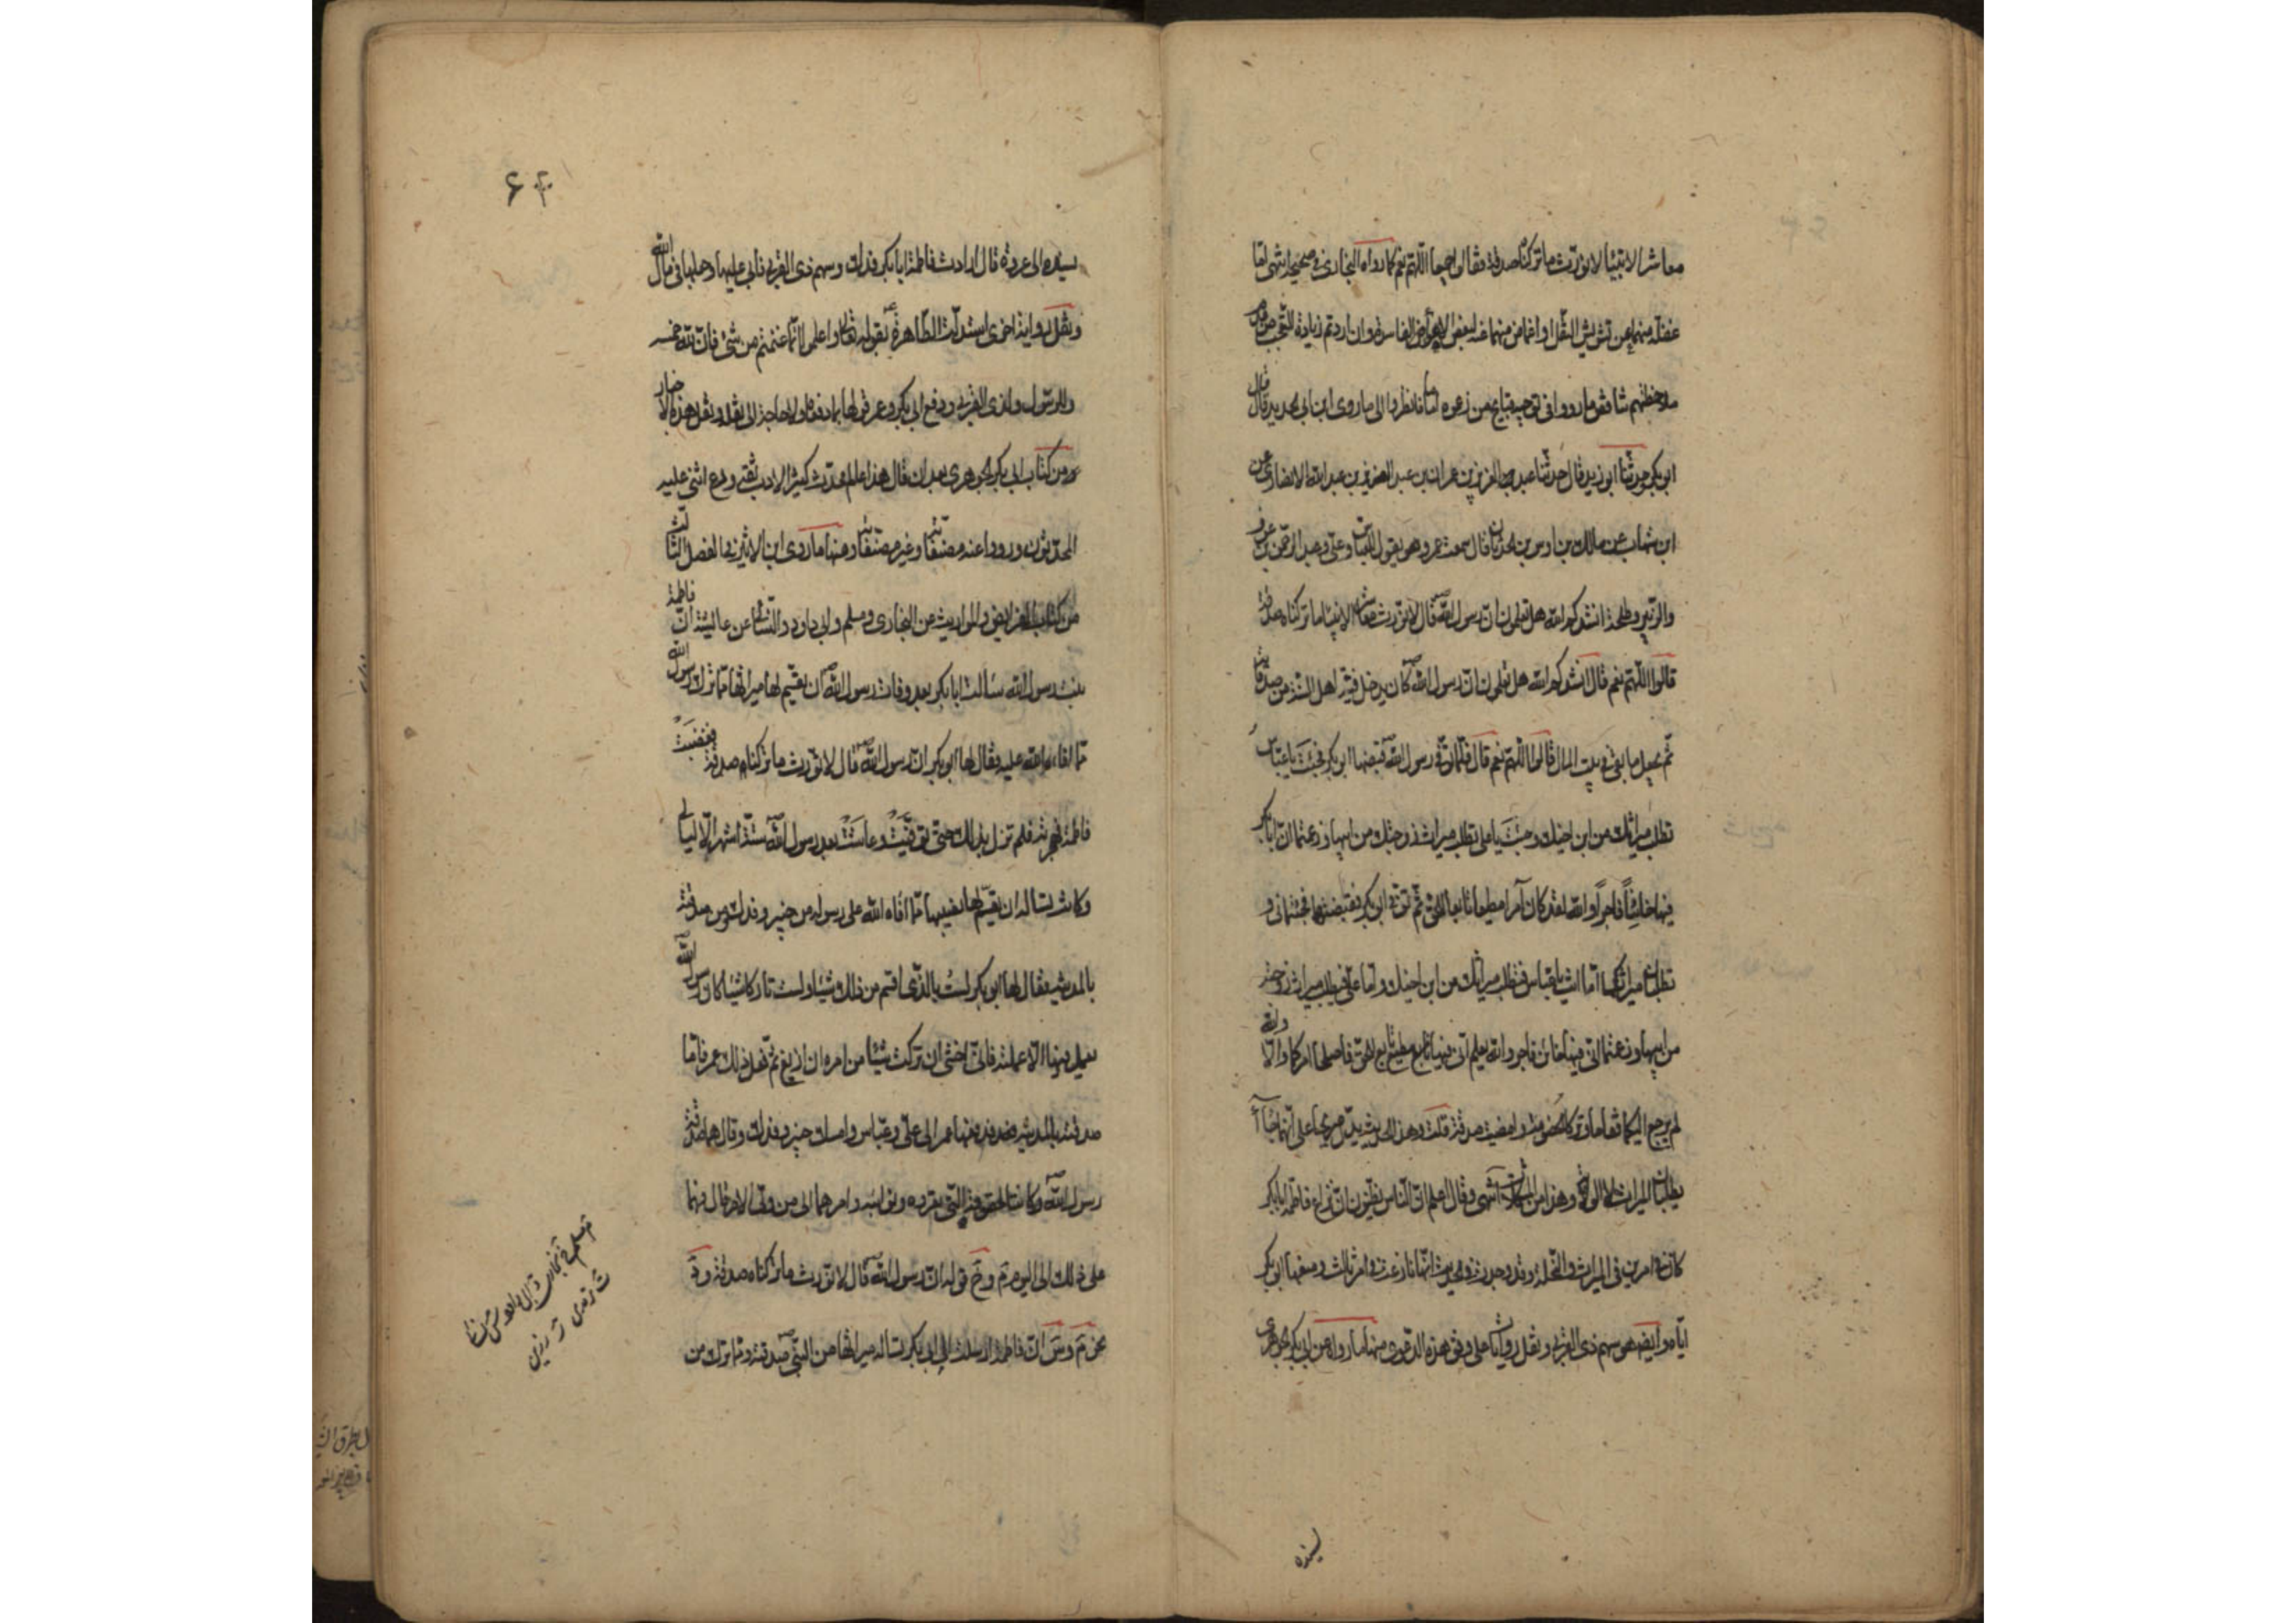 معاشر الانبياء لا نورّث ما تركناه صدقة فقالوا جميعا اللّهمّ نعم كما رواه البخارى فى صحيحه انتهى لقا
منهما عن او اغماض منهما عنه لبعض الاغراض الفاسدة وان اردتم زيادة التعجّب من
ما رووا فى من زعموه اماما فانظروا الى ما روى ابن ابى الحديد قال قال
ابو بكر حدّثنا ابو زيد قال حدّثنا عبد العزيز بن عمران بن عبد العزيز بن عبد الله الانصارى عن
ابن شهاب عن مالك بن اوس بن الحدثان قال سمعت عمر وهو يقول للعبّاس وعلىّ وعبد الرحمن بن عوف
والزبير وطلحة انشدكم الله هل تعلمون انّ رسول الله ص قال لا نورث معاشر الانبياء ما تركناه صدقة
قالوا اللّهمّ نعم قال انشدكم الله هل تعلمون انّ رسول الله ص كان يدخل فيئه اهله السنة من صدقاته
ثمّ يجعل ما بقى فى بيت المال قالوا اللّهمّ نعم قال فلمّا توفّى رسول الله ص قبضها ابو بكر فجئتَ يا عبّاس
تطلب ميراثك من ابن اخيك وجئتَ يا على تطلب ميراث زوجتك من ابيها وزعمتما انّ ابا بكر
فيها خائناً فاجراً والله لقد كان امرأ مطيعا تابعا للحقّ ثمّ توفّى ابو بكر فقبضتها فجئتمانى
تطلبان ميراثكما امّا انت يا عبّاس فتطلب ميراثك من ابن اخيك وامّا علىّ فيطلب ميراث زوجته
من ابيها وزعمتما انّى فيها خائن فاجر والله يعلم انّى فيها مطيع تابع للحقّ فاصلحا امركما والّا والله
لم يرجع اليكما فقاما وتركا الخصومة وامضيت صدقة قلت وهذا الحديث يدلّ صريحا على انّهما جاءا
يطلبان الميراث لا الولاية وهذا من المشكلات انتهى وقال اعلم انّ النّاس يظنّون انّ نزاع فاطمة ابا بكر
كان فى امرين فى الميراث والنّحلة وقد وجدت فى الحديث انّها نازعت فى امر ثالث ومنعها ابو بكر
ايّاه وايضه هو سهم ذى القربى ونقل روايات على وفق هذه الدعوى منها ما رواه عن ابى بكر الجوهرى
بسنده
۶۴
بسنده الى عروة قال ارادت فاطمة ابا بكر فدك وسهم ذى القربى فابى عليها وجعلها فى مال الله
ونقل رواية اخرى استدلّت الطّاهرة ع بقوله تعالى واعلموا انّما غنمتم من شىء فانّ لله خمسه
وللرّسول ولذى القربى ودفع ابى بكر وعمر قولها بما دفعا ولا حاجة الى نقله ونقل هذه الاخبار
من كتاب ابى بكر الجوهرى بعد ان قال هذا عالم محدّث كثير الادب ثقة ورع اثنى عليه
المحدّثون ورووا عنه مصنّفاته وغير مصنّفاته ومنها ما روى ابن الاثير فى الفصل الثالث
من كتاب الفرائض والمواريث عن البخارى ومسلم وابى داود والنّسائى عن عائشة انّ فاطمة
بنت رسول الله سالت ابا بكر بعد وفات رسول الله ص ان يقسم لها ميراثها ممّا ترك رسول الله
ممّا افاء الله عليه فقال لها ابو بكر انّ رسول الله ص قال لا نورّث ما تركناه صدقة فغضبَتْ
فاطمة فهجرته فلم تزل بذلك حتّى توفّيَتْ وعاشَتْ بعد رسول الله ص ستّة اشهر الّا ليالى
وكانت تساله ان يقسم لها نصيبها ممّا افاء الله على رسوله من خيبر وفدك ومن صدقته
بالمدينة فقال لها ابو بكر لست بالذى اقسم من ذلك شيئا ولست تاركا شيئا كان رسول الله ص
يعمل به فيها الّا عملته فانّى اخشى ان تركت شيئا من امره ان ازيغ ثمّ فعل ذلك عمر فامّا
صدقته بالمدينة فدفعها عمر الى علىّ وعبّاس وامسك خيبر وفدك وقال هما صدقة
رسول الله ص وكانت لحقوقه الّتى تعروه ونوائبه وامرهما الى من ولّى الامر قال فهما
على ذلك الى اليوم م و خ قوله انّ رسول الله ص قال لا نورث ما تركناه صدقة و د
نحو م و س انّ فاطمة ارسلت الى ابى بكر تساله ميراثها من النّبىّ ص صدقته وممّا ترك من